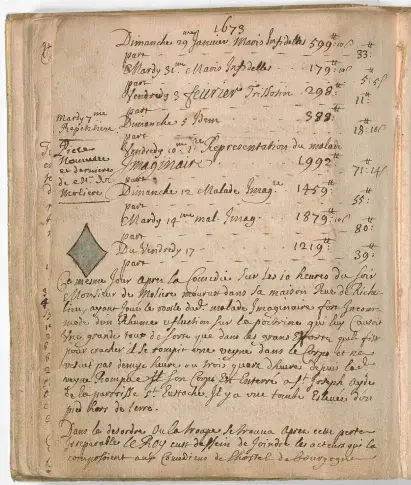 1673
Dimanche 29 Janvier Maris Infidelles 599
part 33
Mardy 31 Maris Infidelles 179
part 5
Vendredy 3 feuvrier Trissotin 298
part 11
Mardy 7me
Dimanche 5 Idem 388
part 18
Piece
Nouvelle
et derniere
de Mr De
Moliere
Vendredy 10 Representation du malade
Imaginaire 1992
part 71
Dimanche 12 Malade Imag 1459
part 55
Mardy 14me mal. Imag 1879
part 80
Du Vendredy 17 1219
part 39
Ce mesme Jour apres la Comedie Sur les 10 heures du soir
Monsieur de Moliere mourust dans sa maison Rue de Riche
lieu, ayant Joué le roolle dud. malade Imaginaire fort Incom
modé d'un Rhume et fluction sur la poitrine qui luy Causoit
Une grande toux de sorte que dans les grans qu'il fist
pour cracher il se rompit une veyne dans le Corps et ne
vescut pas demye heure ou trois quarts d'heure depuis lad.
veyne Rompue et Son Corps Est Enterré a St Joseph ayde
de la parroisse St Eustache. Il y a une tombe Eslevée d'un
pied hors de terre.
Dans le desordre Ou la troupe se trouva Apres cette perte
Irreparable LE ROY eust dessein de Joindre les acteurs qui la
composoient aux Comediens de l'hostel de bourgogne